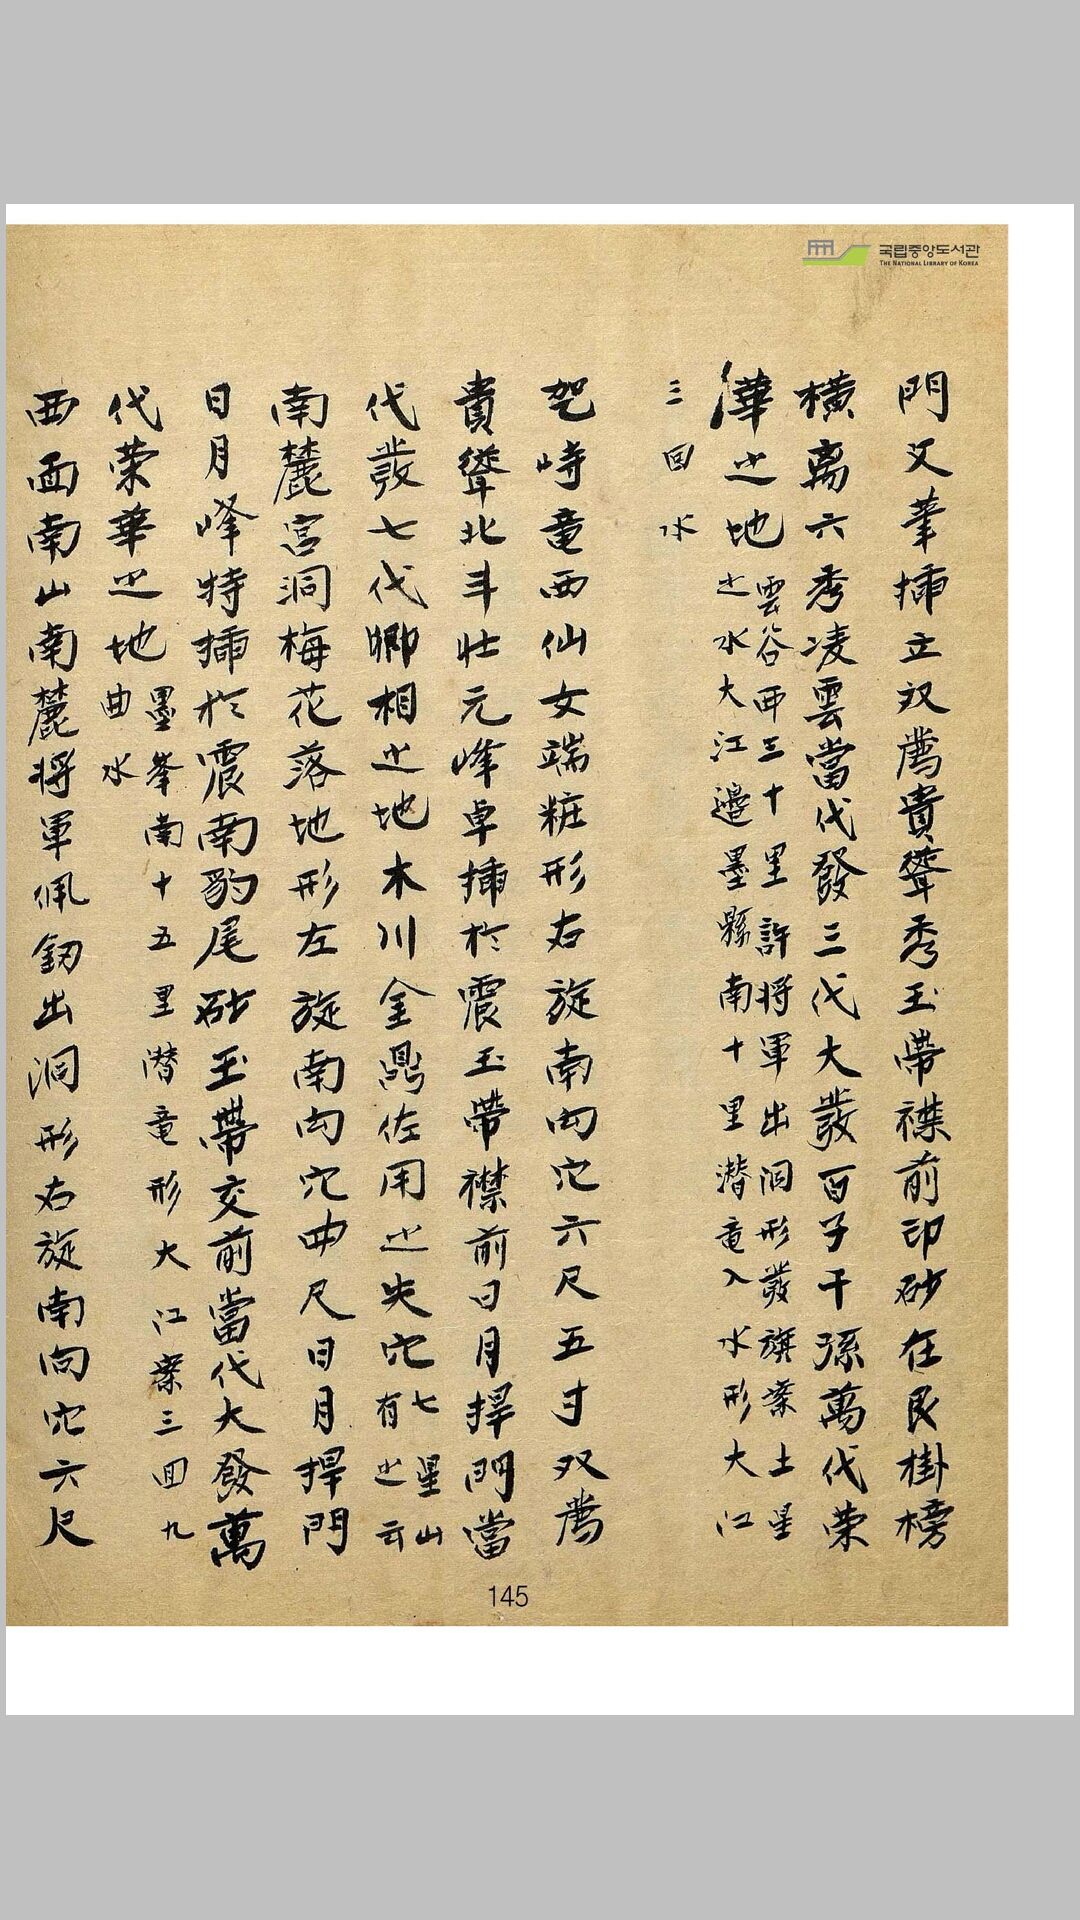 국립중앙도서관
THE NATIONAL LIBRARY OF KOREA
門文筆揷立双薦貴聳秀玉帶襟前印砂在艮掛榜
橫萬六秀凌雲當代發三代大發百子千孫萬代荣
華之地
雲谷西三十里許將軍出洞形發旗案土星
之水大江邊墨縣南十里潜竜入水形大江
三回水
駕峙竜西仙女端粧形右旋南向穴六尺五寸双薦
貴聳北斗壯元峰卓揷於震玉帶襟前日月捍門當
代發七代卿相之地木川金鼎佐用之失穴
七星山
有之云
南麓宮洞梅花落地形左旋南向穴四尺日月捍門
日月峰特揷於震南豹尾砂玉帶交前當代大發萬
代荣華之地
墨峯南十五里潜竜形大江案三回九
曲水
西面南山南麓將軍佩釼出洞形右旋南向穴六尺
145